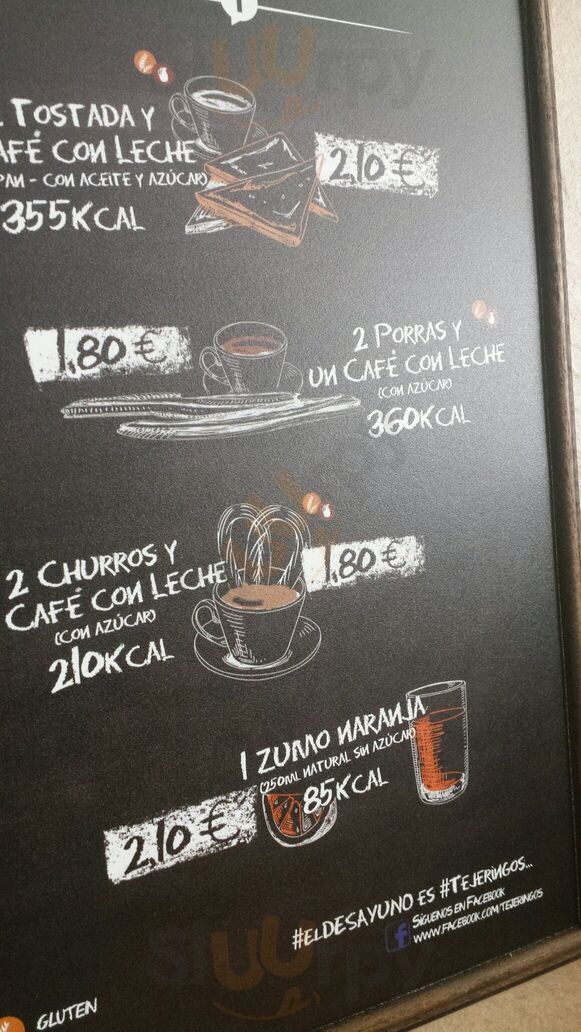 TOSTADA Y
CAFÉ CON LECHE
PAN - CON ACEITE Y AZÚCAR)
355KCAL
2,10 €
1,80 €
2 PORRAS Y
UN CAFÉ CON LECHE
(CON AZÚCAR)
360KCAL
2 CHURROS Y
CAFÉ CON LECHE
(CON AZÚCAR)
210KCAL
1,80 €
1 ZUMO NARANJA
(250ML NATURAL SIN AZÚCAR)
85KCAL
2,10 €
#ELDESAYUNO ES #TEJERINGOS...
SÍGUENOS EN FACEBOOK
WWW.FACEBOOK.COM/TEJERINGOS
GLUTEN
sluurpy
sluurpy